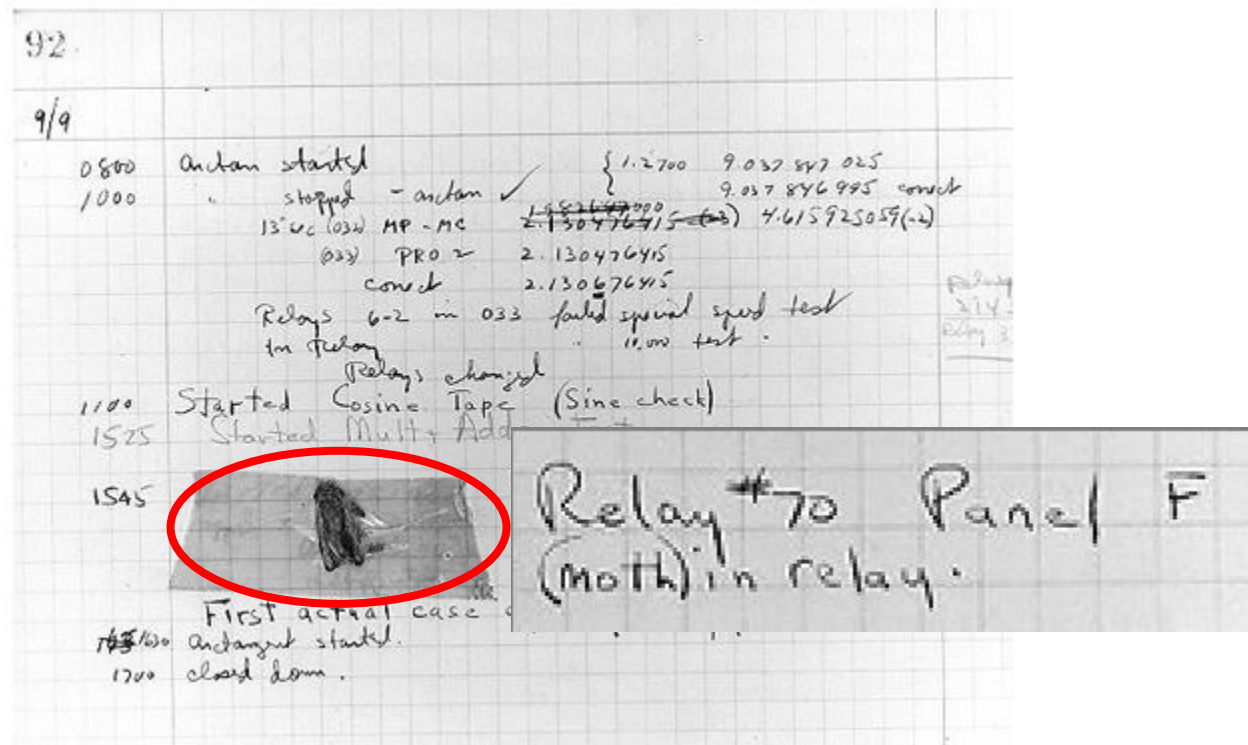 92
9/9
0800 arctan started { 1.2700 9.037 847 025
1000 " stopped - arctan ✓ 9.037 846 995 correct
13"uc (032) MP - MC 2.130476415 (-3) 4.615925059(-2)
(033) PRO 2 2.130476415
correct 2.130676415
Relays 6-2 in 033 failed special speed test
in Relay " 10.000 test .
Relays changed
1100 Started Cosine Tape (Sine check)
1525 Started Mult + Add
1545
Relay #70 Panel F
(moth) in relay.
First actual case
1630 arctangent started.
1700 closed down.